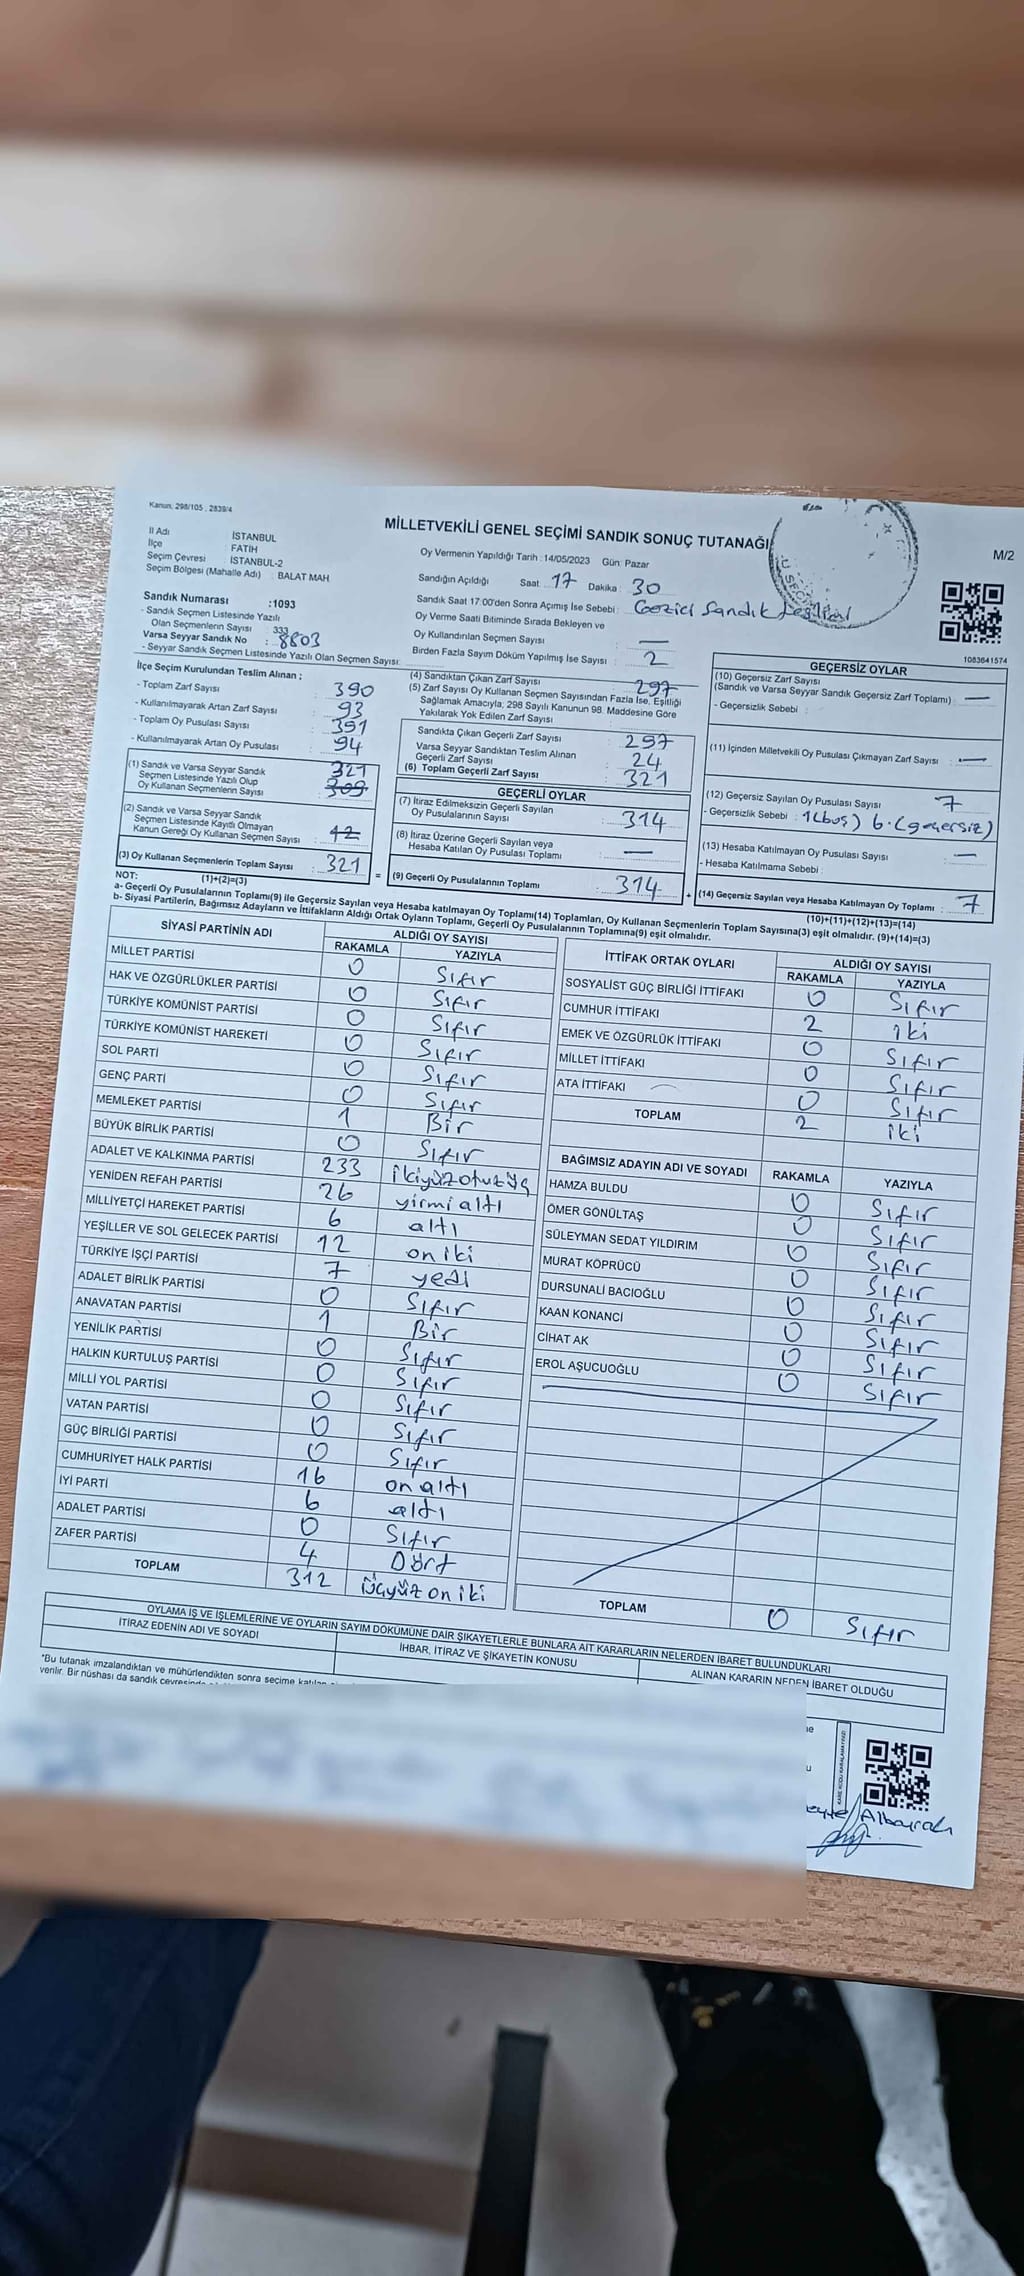 Kanun, 298/105 , 2839/4
MİLLETVEKİLİ GENEL SEÇİMİ SANDIK SONUÇ TUTANAĞI
M/2
İl Adı : İSTANBUL
İlçe : FATİH
Seçim Çevresi : İSTANBUL-2
Seçim Bölgesi (Mahalle Adı) : BALAT MAH
Sandık Numarası :1093
- Sandık Seçmen Listesinde Yazılı
Olan Seçmenlerin Sayısı : 333
Varsa Seyyar Sandık No : 8803
- Seyyar Sandık Seçmen Listesinde Yazılı Olan Seçmen Sayısı:
Oy Vermenin Yapıldığı Tarih : 14/05/2023 Gün: Pazar
Sandığın Açıldığı Saat: 17 Dakika : 30
Sandık Saat 17:00'den Sonra Açımış İse Sebebi : Gezici Sandık
Oy Verme Saati Bitiminde Sırada Bekleyen ve
Oy Kullandırılan Seçmen Sayısı : —
Birden Fazla Sayım Döküm Yapılmış İse Sayısı : 2
1083641574
İlçe Seçim Kurulundan Teslim Alınan ;
- Toplam Zarf Sayısı : 390
- Kullanılmayarak Artan Zarf Sayısı : 93
- Toplam Oy Pusulası Sayısı : 391
- Kullanılmayarak Artan Oy Pusulası : 94
(1) Sandık ve Varsa Seyyar Sandık 321
Seçmen Listesinde Yazılı Olup
Oy Kullanan Seçmenlerin Sayısı : 309
(2) Sandık ve Varsa Seyyar Sandık
Seçmen Listesinde Kayıtlı Olmayan
Kanun Gereği Oy Kullanan Seçmen Sayısı : 12
(3) Oy Kullanan Seçmenlerin Toplam Sayısı : 321
(4) Sandıktan Çıkan Zarf Sayısı : 297
(5) Zarf Sayısı Oy Kullanan Seçmen Sayısından Fazla İse, Eşitliği
Sağlamak Amacıyla, 298 Sayılı Kanunun 98. Maddesine Göre
Yakılarak Yok Edilen Zarf Sayısı :
Sandıkta Çıkan Geçerli Zarf Sayısı : 297
Varsa Seyyar Sandıktan Teslim Alınan
Geçerli Zarf Sayısı : 24
(6) Toplam Geçerli Zarf Sayısı : 321
GEÇERLİ OYLAR
(7) İtiraz Edilmeksizin Geçerli Sayılan
Oy Pusulalarının Sayısı : 314
(8) İtiraz Üzerine Geçerli Sayılan veya
Hesaba Katılan Oy Pusulası Toplamı : —
= (9) Geçerli Oy Pusulalarının Toplamı : 314
GEÇERSİZ OYLAR
(10) Geçersiz Zarf Sayısı
(Sandık ve Varsa Seyyar Sandık Geçersiz Zarf Toplamı) : —
- Geçersizlik Sebebi :
(11) İçinden Milletvekili Oy Pusulası Çıkmayan Zarf Sayısı : —
(12) Geçersiz Sayılan Oy Pusulası Sayısı : 7
- Geçersizlik Sebebi : 1(boş) 6.(geçersiz)
(13) Hesaba Katılmayan Oy Pusulası Sayısı : —
- Hesaba Katılmama Sebebi :
+ (14) Geçersiz Sayılan veya Hesaba Katılmayan Oy Toplamı : 7
NOT: (1)+(2)=(3)
(10)+(11)+(12)+(13)=(14)
a- Geçerli Oy Pusulalarının Toplamı(9) ile Geçersiz Sayılan veya Hesaba katılmayan Oy Toplamı(14) Toplamları, Oy Kullanan Seçmenlerin Toplam Sayısına(3) eşit olmalıdır. (9)+(14)=(3)
b- Siyasi Partilerin, Bağımsız Adayların ve İttifakların Aldığı Ortak Oyların Toplamı, Geçerli Oy Pusulalarının Toplamına(9) eşit olmalıdır.
SİYASİ PARTİNİN ADI ALDIĞI OY SAYISI
RAKAMLA YAZIYLA
MİLLET PARTİSİ 0 Sıfır
HAK VE ÖZGÜRLÜKLER PARTİSİ 0 Sıfır
TÜRKİYE KOMÜNİST PARTİSİ 0 Sıfır
TÜRKİYE KOMÜNİST HAREKETİ 0 Sıfır
SOL PARTİ 0 Sıfır
GENÇ PARTİ 0 Sıfır
MEMLEKET PARTİSİ 1 Bir
BÜYÜK BİRLİK PARTİSİ 0 Sıfır
ADALET VE KALKINMA PARTİSİ 233 ikiyüzotuzüç
YENİDEN REFAH PARTİSİ 26 yirmi altı
MİLLİYETÇİ HAREKET PARTİSİ 6 altı
YEŞİLLER VE SOL GELECEK PARTİSİ 12 on iki
TÜRKİYE İŞÇİ PARTİSİ 7 yedi
ADALET BİRLİK PARTİSİ 0 Sıfır
ANAVATAN PARTİSİ 1 Bir
YENİLİK PARTİSİ 0 Sıfır
HALKIN KURTULUŞ PARTİSİ 0 Sıfır
MİLLİ YOL PARTİSİ 0 Sıfır
VATAN PARTİSİ 0 Sıfır
GÜÇ BİRLİĞİ PARTİSİ 0 Sıfır
CUMHURİYET HALK PARTİSİ 16 on altı
İYİ PARTİ 6 altı
ADALET PARTİSİ 0 Sıfır
ZAFER PARTİSİ 4 Dört
TOPLAM 312 üçyüz on iki
İTTİFAK ORTAK OYLARI ALDIĞI OY SAYISI
RAKAMLA YAZIYLA
SOSYALİST GÜÇ BİRLİĞİ İTTİFAKI 0 Sıfır
CUMHUR İTTİFAKI 2 iki
EMEK VE ÖZGÜRLÜK İTTİFAKI 0 Sıfır
MİLLET İTTİFAKI 0 Sıfır
ATA İTTİFAKI 0 Sıfır
TOPLAM 2 iki
BAĞIMSIZ ADAYIN ADI VE SOYADI RAKAMLA YAZIYLA
HAMZA BULDU 0 Sıfır
ÖMER GÖNÜLTAŞ 0 Sıfır
SÜLEYMAN SEDAT YILDIRIM 0 Sıfır
MURAT KÖPRÜCÜ 0 Sıfır
DURSUNALİ BACIOĞLU 0 Sıfır
KAAN KONANCI 0 Sıfır
CİHAT AK 0 Sıfır
EROL AŞUCUOĞLU 0 Sıfır
TOPLAM 0 Sıfır
OYLAMA İŞ VE İŞLEMLERİNE VE OYLARIN SAYIM DÖKÜMÜNE DAİR ŞİKAYETLERLE BUNLARA AİT KARARLARIN NELERDEN İBARET BULUNDUKLARI
İTİRAZ EDENİN ADI VE SOYADI İHBAR, İTİRAZ VE ŞİKAYETİN KONUSU ALINAN KARARIN NEDEN İBARET OLDUĞU
*Bu tutanak imzalandıktan ve mühürlendikten sonra seçime katılan
verilir. Bir nüshası da sandık çevresinde
Albayrak